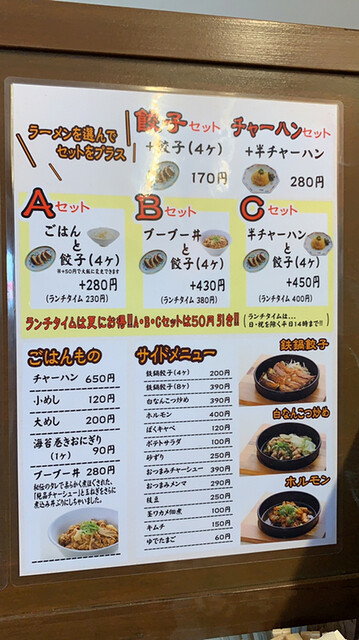 ラーメンを選んで
セットをプラス
餃子セット
+餃子(4ヶ)
170円
チャーハンセット
+半チャーハン
280円
Aセット
ごはん
と
餃子(4ヶ)
※+50円で大飯に変更できます
+280円
(ランチタイム 230円)
Bセット
ブーブー丼
と
餃子(4ヶ)
+430円
(ランチタイム 380円)
Cセット
半チャーハン
と
餃子(4ヶ)
+450円
(ランチタイム 400円)
ランチタイムは更にお得!!A・B・Cセットは50円引き!!
(ランチタイムは…
日・祝を除く平日14時まで!!)
ごはんもの
チャーハン 650円
小めし 120円
大めし 200円
海苔巻きおにぎり
(1ヶ) 90円
ブーブー丼 280円
秘伝のタレで柔らかく煮ほぐされた、
「絶品チャーシュー」と玉ねぎをさらに
煮込み丼ぶりにしちゃいました。
サイドメニュー
鉄鍋餃子(4ヶ) 200円
鉄鍋餃子(8ヶ) 390円
白なんこつ炒め 390円
ホルモン 400円
ぱくキャベ 120円
ポテトサラダ 100円
砂ずり 250円
おつまみチャーシュー 390円
おつまみメンマ 250円
枝豆 250円
茎ワカメ佃煮 100円
キムチ 150円
ゆでたまご 60円
鉄鍋餃子
白なんこつ炒め
ホルモン